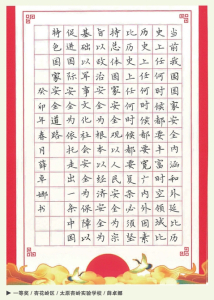 当前我国国家安全内涵和外延比历
史上任何时候都要丰富时空领域比
历史上任何时候都要宽广内外因素
比历史上任何时候都要复杂必须坚
持总体国家安全观以人民安全为宗
旨以政治安全为根本以经济安全为
基础以军事文化社会安全为保障以
促进国际安全为依托走出一条中国
特色国家安全道路
癸卯年春月薛卓娜书
一等奖 / 杏花岭区 / 太原杏岭实验学校 / 薛卓娜